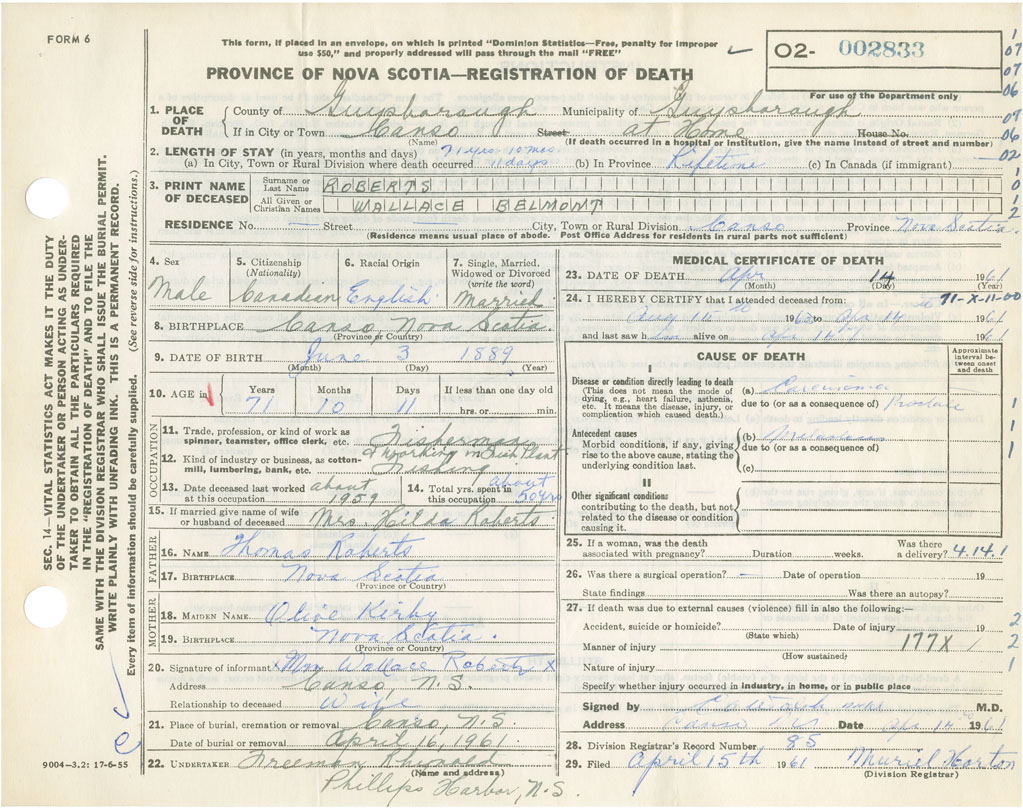 FORM 6
This form, if placed in an envelope, on which is printed "Dominion Statistics—Free, penalty for improper
use $50," and properly addressed will pass through the mail "FREE"
O2- 002833
For use of the Department only
PROVINCE OF NOVA SCOTIA—REGISTRATION OF DEATH
1. PLACE OF DEATH
County of Guysborough Municipality of Guysborough
If in City or Town Canso Street at Home House No.
(Name) (If death occurred in a hospital or institution, give the name instead of street and number)
2. LENGTH OF STAY (in years, months and days) 71 yrs 10 mos.
(a) In City, Town or Rural Division where death occurred 11 days (b) In Province Lifetime (c) In Canada (if immigrant)
3. PRINT NAME OF DECEASED
Surname or Last Name ROBERTS
All Given or Christian Names WALLACE BELMONT
RESIDENCE No. — Street — City, Town or Rural Division Canso Province Nova Scotia
(Residence means usual place of abode. Post Office Address for residents in rural parts not sufficient)
4. Sex Male
5. Citizenship (Nationality) Canadian
6. Racial Origin English
7. Single, Married, Widowed or Divorced (write the word) Married
8. BIRTHPLACE Canso, Nova Scotia.
(Province or Country)
9. DATE OF BIRTH June 3 1889
(Month) (Day) (Year)
10. AGE in
Years Months Days If less than one day old
71 10 11 hrs. or min.
OCCUPATION
11. Trade, profession, or kind of work as
spinner, teamster, office clerk, etc. Fisherman
& working in Fish Plant
12. Kind of industry or business, as cotton-
mill, lumbering, bank, etc. Fishing
13. Date deceased last worked at this occupation about 1959
14. Total yrs. spent in this occupation about 50 yrs
15. If married give name of wife
or husband of deceased Mrs. Hilda Roberts.
FATHER
16. NAME Thomas Roberts
17. BIRTHPLACE Nova Scotia
(Province or Country)
MOTHER
18. MAIDEN NAME Olive Kirby
19. BIRTHPLACE Nova Scotia.
(Province or Country)
20. Signature of informant x Mrs Wallace Roberts x
Address Canso, N.S.
Relationship to deceased Wife
21. Place of burial, cremation or removal Canso, N.S.
Date of burial or removal April 16, 1961.
22. UNDERTAKER Freeman
(Name and address)
Phillips Harbor, N.S.
9004—3.2: 17-6-55
MEDICAL CERTIFICATE OF DEATH
23. DATE OF DEATH Apr 14 1961
(Month) (Day) (Year)
24. I HEREBY CERTIFY that I attended deceased from:
71-X-11-00
to Apr 14 1961
and last saw h alive on Apr 14 1961
CAUSE OF DEATH
Approximate interval between onset and death
I
Disease or condition directly leading to death
(This does not mean the mode of
dying, e.g., heart failure, asthenia,
etc. It means the disease, injury, or
complication which caused death.)
(a) Carcinoma
due to (or as a consequence of) Prostate
Antecedent causes
Morbid conditions, if any, giving
rise to the above cause, stating the
underlying condition last.
(b)
due to (or as a consequence of)
(c)
II
Other significant conditions
contributing to the death, but not
related to the disease or condition
causing it.
25. If a woman, was the death
associated with pregnancy? Duration weeks. Was there a delivery? 4.14.1
26. Was there a surgical operation? — Date of operation 19
State findings Was there an autopsy?
27. If death was due to external causes (violence) fill in also the following:—
Accident, suicide or homicide? Date of injury 19
(State which)
Manner of injury 177X
(How sustained)
Nature of injury
Specify whether injury occurred in industry, in home, or in public place
Signed by M.D.
Address Canso N.S. Date Apr 14 1961
28. Division Registrar's Record Number 85
29. Filed April 15th 1961 Muriel Horton
(Division Registrar)
SEC. 14—VITAL STATISTICS ACT MAKES IT THE DUTY
OF THE UNDERTAKER OR PERSON ACTING AS UNDER-
TAKER TO OBTAIN ALL THE PARTICULARS REQUIRED
IN THE "REGISTRATION OF DEATH" AND TO FILE THE
SAME WITH THE DIVISION REGISTRAR WHO SHALL ISSUE THE BURIAL PERMIT.
WRITE PLAINLY WITH UNFADING INK. THIS IS A PERMANENT RECORD.
Every item of information should be carefully supplied. (See reverse side for instructions.)
1
07
07
06
07
06
02
1
0
1
2
1
1
1
2
2
1